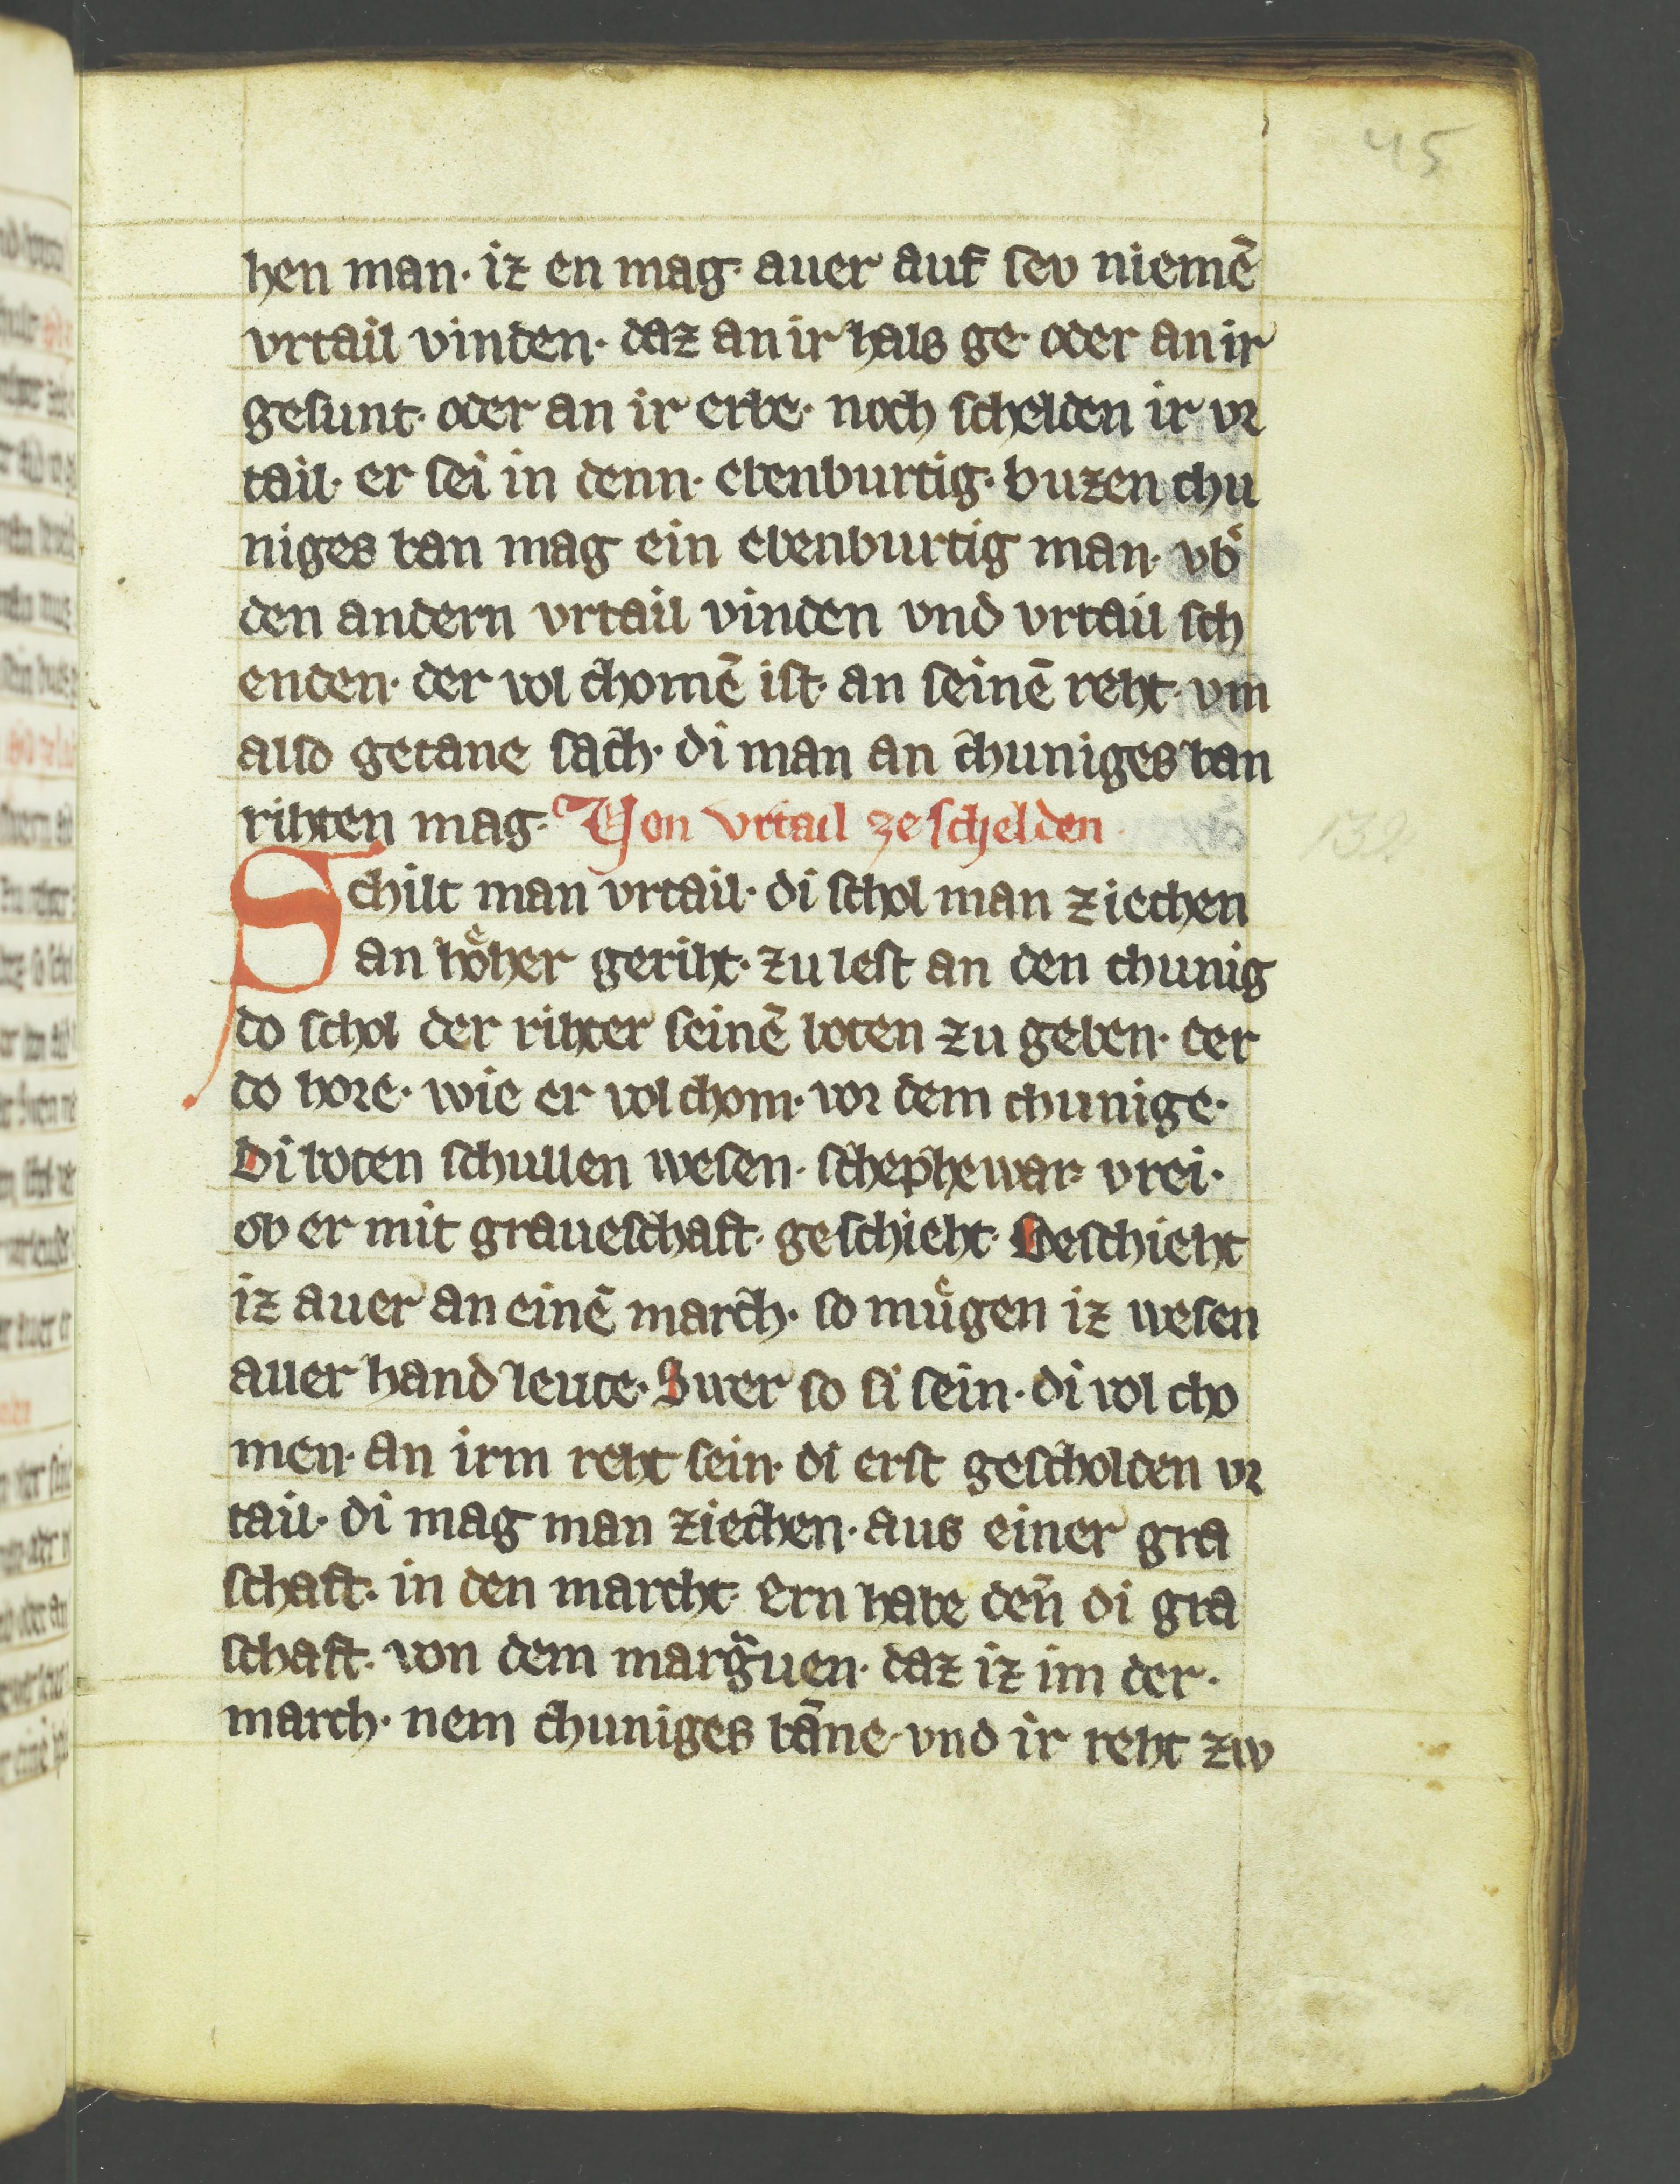 45
hen man· iz en mag· auer auf sev niemē
vrtail vinden· daz an ir hals ge· oder an ir
gesunt· oder an ir erbe· noch schelden ir vr
tail· er sei in denn· ebenburtig· buzen chu
niges ban mag ein ebenburtig man· vbͤ
den andern vrtail vinden vnd vrtail sch
enden· der vol chomē ist· an seinē reht· vm
also getane sach· di man an chuniges ban
rihten mag· Von vrtail ze schelden
132
Schilt man vrtail· di schol man ziechen
an hoͤher geriht· zu lest an den chunig
do schol der rihter seinē boten zu geben· der
do hore· wie er vol chom· vor dem chunige·
Di boten schullen wesen· schephe war vrei·
ob er mit graueschaft· geschieht· Geschieht
iz auer an einē march· so muͤgen iz wesen
auer hand leute· Swer so si sein· di vol cho
men· an irm reht sein· di erst gescholden vr
tail· di mag man ziechen· aus einer gra
schaft· in den marcht· ern habe den̄ di gra
schaft· von dem marg̃uen· daz iz im der·
march· nem chuniges bāne· vnd ir reht zw